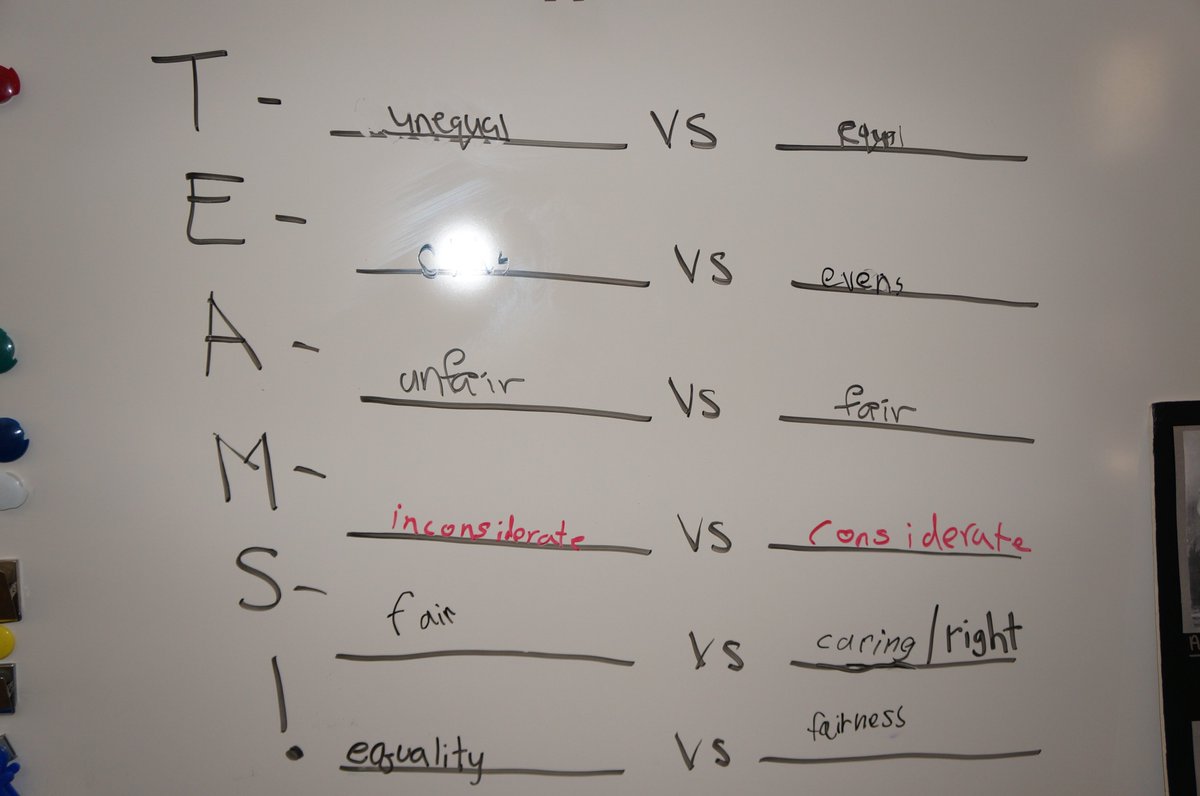 T - unequal VS equal
E - VS evens
A - unfair VS fair
M - inconsiderate VS considerate
S - fair VS caring/right
! equality VS fairness